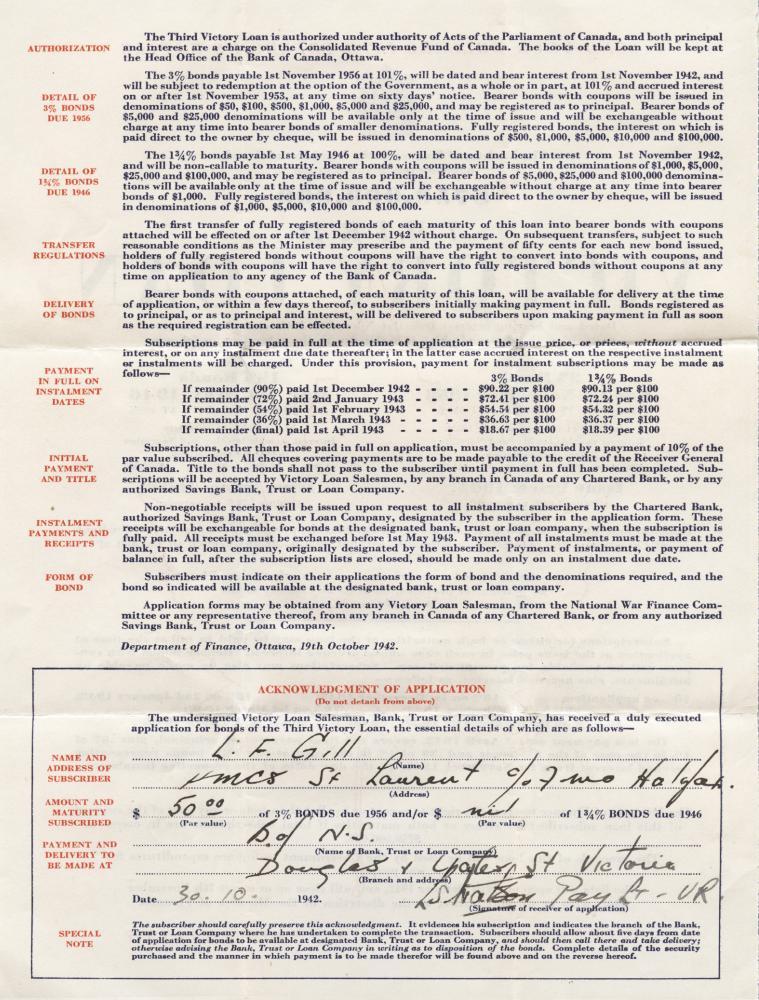 AUTHORIZATION
The Third Victory Loan is authorized under authority of Acts of the Parliament of Canada, and both principal
and interest are a charge on the Consolidated Revenue Fund of Canada. The books of the Loan will be kept at
the Head Office of the Bank of Canada, Ottawa.
DETAIL OF
3% BONDS
DUE 1956
The 3% bonds payable 1st November 1956 at 101%, will be dated and bear interest from 1st November 1942, and
will be subject to redemption at the option of the Government, as a whole or in part, at 101% and accrued interest
on or after 1st November 1953, at any time on sixty days' notice. Bearer bonds with coupons will be issued in
denominations of $50, $100, $500, $1,000, $5,000 and $25,000, and may be registered as to principal. Bearer bonds of
$5,000 and $25,000 denominations will be available only at the time of issue and will be exchangeable without
charge at any time into bearer bonds of smaller denominations. Fully registered bonds, the interest on which is
paid direct to the owner by cheque, will be issued in denominations of $500, $1,000, $5,000, $10,000 and $100,000.
DETAIL OF
1¾% BONDS
DUE 1946
The 1¾% bonds payable 1st May 1946 at 100%, will be dated and bear interest from 1st November 1942,
and will be non-callable to maturity. Bearer bonds with coupons will be issued in denominations of $1,000, $5,000,
$25,000 and $100,000, and may be registered as to principal. Bearer bonds of $5,000, $25,000 and $100,000 denomina-
tions will be available only at the time of issue and will be exchangeable without charge at any time into bearer
bonds of $1,000. Fully registered bonds, the interest on which is paid direct to the owner by cheque, will be issued
in denominations of $1,000, $5,000, $10,000 and $100,000.
TRANSFER
REGULATIONS
The first transfer of fully registered bonds of each maturity of this loan into bearer bonds with coupons
attached will be effected on or after 1st December 1942 without charge. On subsequent transfers, subject to such
reasonable conditions as the Minister may prescribe and the payment of fifty cents for each new bond issued,
holders of fully registered bonds without coupons will have the right to convert into bonds with coupons, and
holders of bonds with coupons will have the right to convert into fully registered bonds without coupons at any
time on application to any agency of the Bank of Canada.
DELIVERY
OF BONDS
Bearer bonds with coupons attached, of each maturity of this loan, will be available for delivery at the time
of application, or within a few days thereof, to subscribers initially making payment in full. Bonds registered as
to principal, or as to principal and interest, will be delivered to subscribers upon making payment in full as soon
as the required registration can be effected.
PAYMENT
IN FULL ON
INSTALMENT
DATES
Subscriptions may be paid in full at the time of application at the issue price, or prices, without accrued
interest, or on any instalment due date thereafter; in the latter case accrued interest on the respective instalment
or instalments will be charged. Under this provision, payment for instalment subscriptions may be made as
follows—
3% Bonds 1¾% Bonds
If remainder (90%) paid 1st December 1942 - - - - $90.22 per $100 $90.13 per $100
If remainder (72%) paid 2nd January 1943 - - - - $72.41 per $100 $72.24 per $100
If remainder (54%) paid 1st February 1943 - - - - $54.54 per $100 $54.32 per $100
If remainder (36%) paid 1st March 1943 - - - - - $36.63 per $100 $36.37 per $100
If remainder (final) paid 1st April 1943 - - - - - $18.67 per $100 $18.39 per $100
INITIAL
PAYMENT
AND TITLE
Subscriptions, other than those paid in full on application, must be accompanied by a payment of 10% of the
par value subscribed. All cheques covering payments are to be made payable to the credit of the Receiver General
of Canada. Title to the bonds shall not pass to the subscriber until payment in full has been completed. Sub-
scriptions will be accepted by Victory Loan Salesmen, by any branch in Canada of any Chartered Bank, or by any
authorized Savings Bank, Trust or Loan Company.
INSTALMENT
PAYMENTS AND
RECEIPTS
Non-negotiable receipts will be issued upon request to all instalment subscribers by the Chartered Bank,
authorized Savings Bank, Trust or Loan Company, designated by the subscriber in the application form. These
receipts will be exchangeable for bonds at the designated bank, trust or loan company, when the subscription is
fully paid. All receipts must be exchanged before 1st May 1943. Payment of all instalments must be made at the
bank, trust or loan company, originally designated by the subscriber. Payment of instalments, or payment of
balance in full, after the subscription lists are closed, should be made only on an instalment due date.
FORM OF
BOND
Subscribers must indicate on their applications the form of bond and the denominations required, and the
bond so indicated will be available at the designated bank, trust or loan company.
Application forms may be obtained from any Victory Loan Salesman, from the National War Finance Com-
mittee or any representative thereof, from any branch in Canada of any Chartered Bank, or from any authorized
Savings Bank, Trust or Loan Company.
Department of Finance, Ottawa, 19th October 1942.
ACKNOWLEDGMENT OF APPLICATION
(Do not detach from above)
The undersigned Victory Loan Salesman, Bank, Trust or Loan Company, has received a duly executed
application for bonds of the Third Victory Loan, the essential details of which are as follows—
NAME AND
ADDRESS OF
SUBSCRIBER
L. F. Gill
(Name)
HMCS St Laurent c/o FMO Halifax.
(Address)
AMOUNT AND
MATURITY
SUBSCRIBED
$ 50 00 of 3% BONDS due 1956 and/or $ nil of 1¾% BONDS due 1946
(Par value) (Par value)
PAYMENT AND
DELIVERY TO
BE MADE AT
B of N.S.
(Name of Bank, Trust or Loan Company)
Douglas & Yates St Victoria
(Branch and address)
Date 30. 10. 1942. Pay Lt - VR
(Signature of receiver of application)
SPECIAL
NOTE
The subscriber should carefully preserve this acknowledgment. It evidences his subscription and indicates the branch of the Bank,
Trust or Loan Company where he has undertaken to complete the transaction. Subscribers should allow about five days from date
of application for bonds to be available at designated Bank, Trust or Loan Company, and should then call there and take delivery;
otherwise advising the Bank, Trust or Loan Company in writing as to disposition of the bonds. Complete details of the security
purchased and the manner in which payment is to be made therefor will be found above and on the reverse hereof.